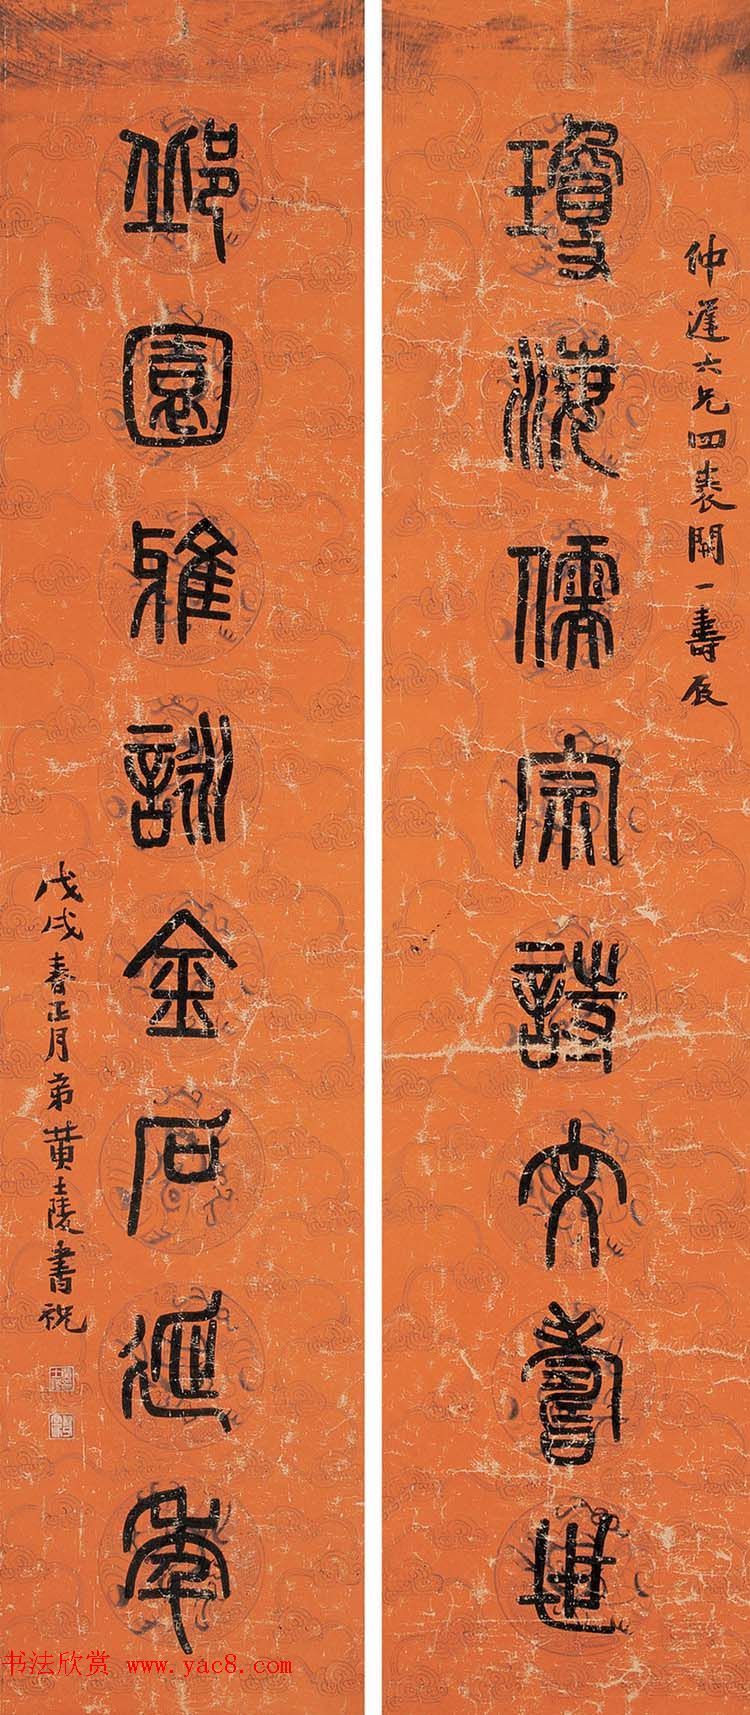 仲遲六兄四袠開一壽辰
瓊海儒宗詩文壽世
邱園雅詠金石延年
戊戌春正月弟黄士陵書祝
书法欣赏 www.yac8.com